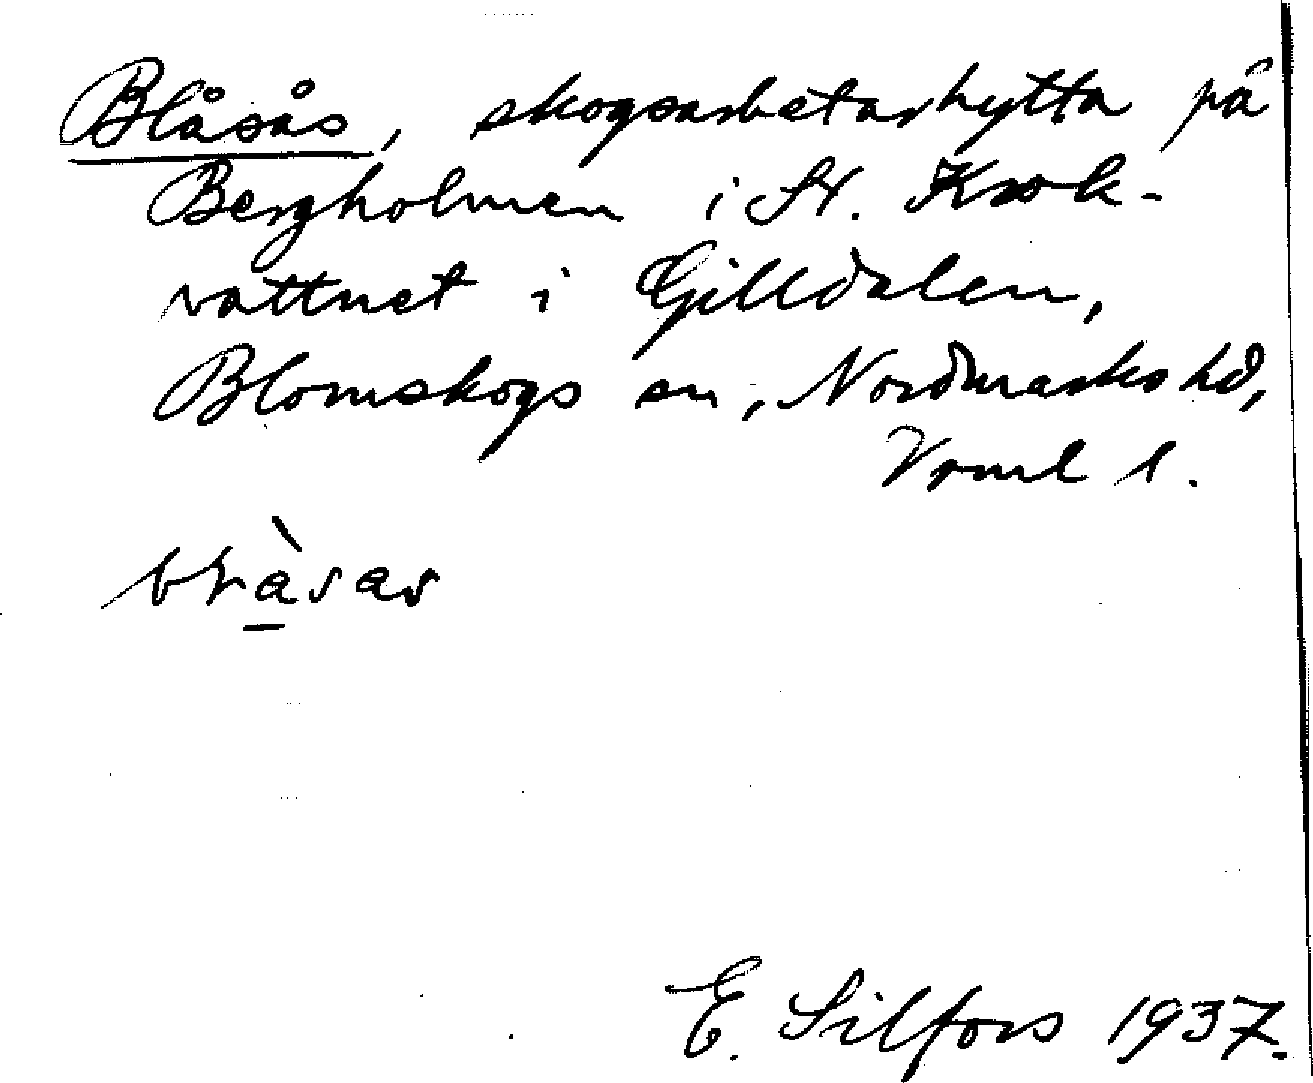 Blåsås, skogsarbetarhytta på
Bergholmen i St. Krok-
vattnet i Gilldalen,
Blomskogs sn, Nordmarks hd,
Vrml l.
E. Silfors 1937.